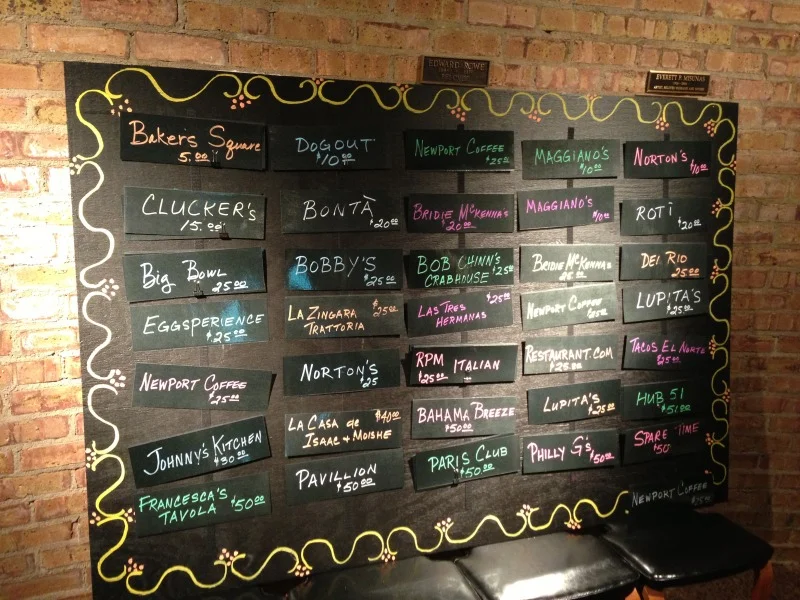 EDWARD ROWE
EVERETT F. MISUNAS
Baker's Square
5.00
CLUCKER'S
15.00
Big Bowl
25.00
EGGSPERIENCE
$25.00
NEWPORT COFFEE
$25.00
JOHNNY'S KITCHEN
$30.00
FRANCESCA'S
TAVOLA $50.00
DOGOUT
$10.00
BONTÀ
$20.00
BOBBY'S
$25.00
LA ZINGARA
TRATTORIA
$25.00
NORTON'S
$25
LA CASA de $40.00
ISAAC & MOISHE
PAVILLION
$50.00
NEWPORT COFFEE
$25.00
BRIDIE MCKENNAS
$20.00
BOB CHINN'S
CRABHOUSE $25.00
LAS TRES $25.00
HERMANAS
RPM ITALIAN
$25.00
BAHAMA BREEZE
$50.00
PARIS CLUB
$50.00
MAGGIANO'S
$10.00
MAGGIANO'S
$10.00
BRIDIE MCKENNAS
25.00
NEWPORT COFFEE
$25.00
RESTAURANT.COM
$25.00
LUPITA'S
$25.00
PHILLY G'S
$50.00
NORTON'S
$10.00
ROTI
$20.00
DEL RIO
25.00
LUPITA'S
$25.00
TACOS EL NORTE
$25.00
HUB 51
$51.00
SPARE TIME
$50
NEWPORT COFFEE